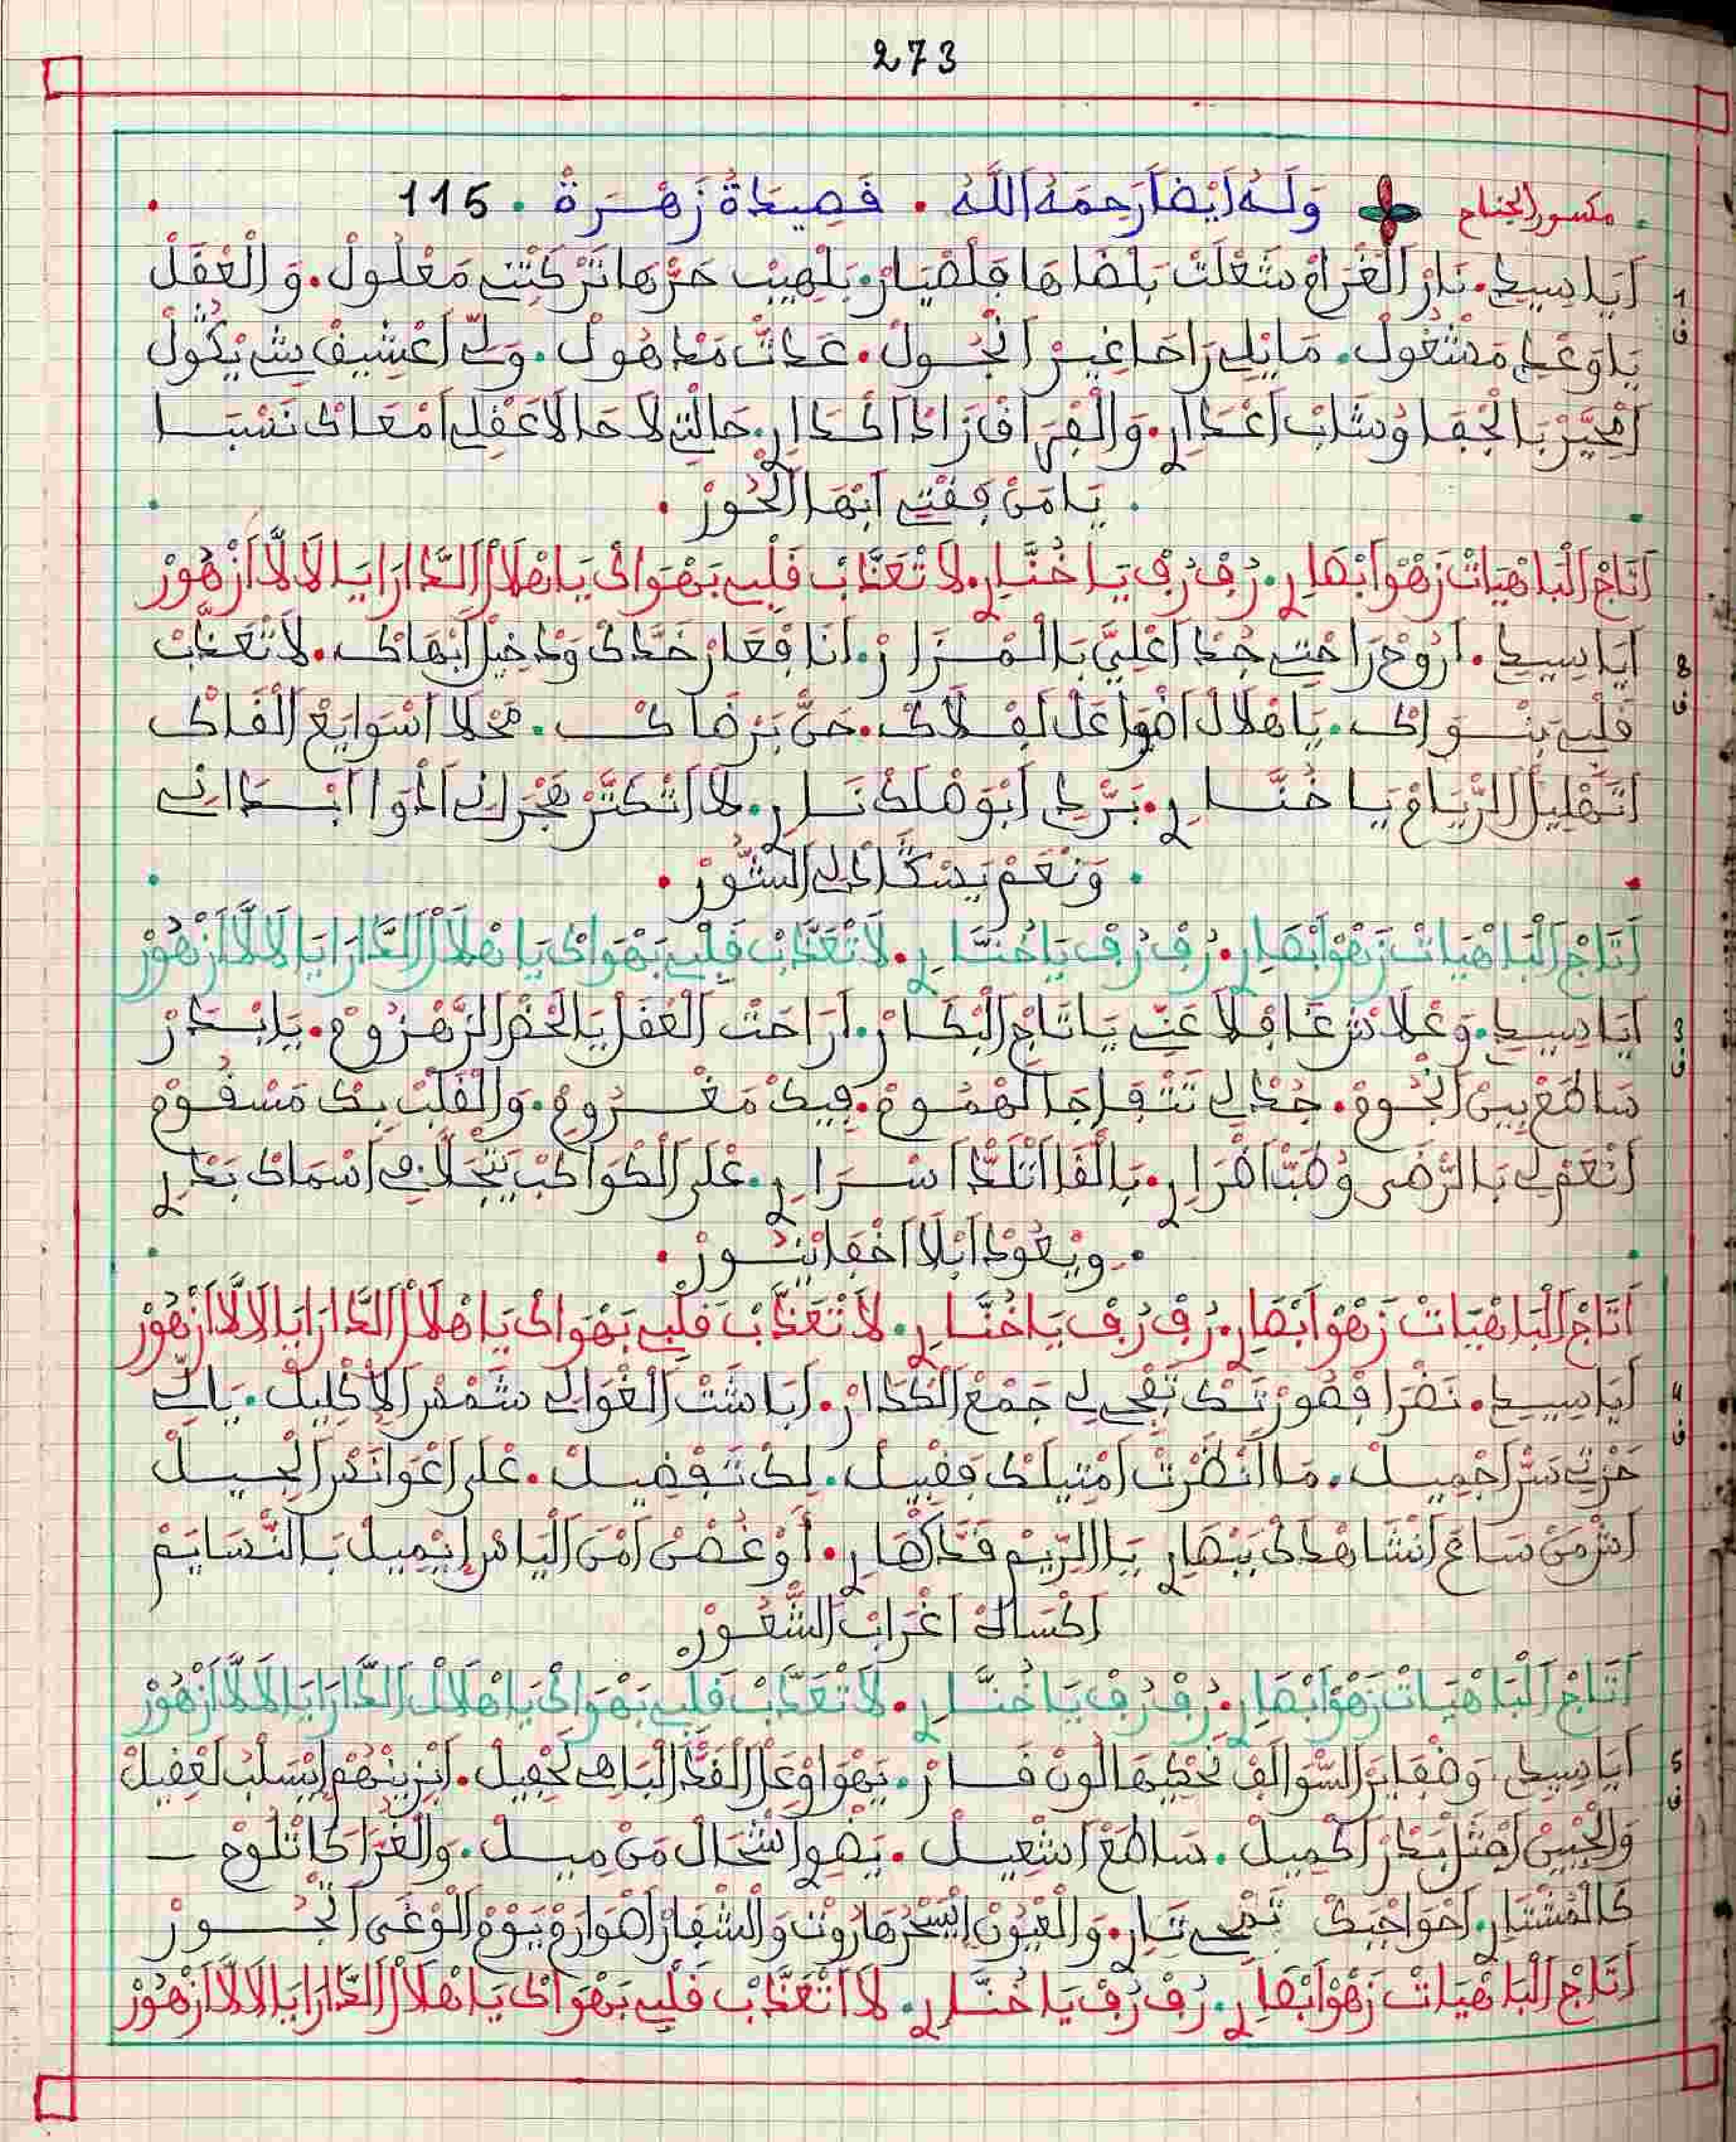 273
مكسور الجناح وَلَهُ أَيْضاً رَحِمَهُ اللَّهُ . قَصِيدَةُ زَهْرَة . 115
1 أيا سيدي . نار الغرام شعلت بلضاها فلضيار . بلهيب حرها تركتني معلول . والعقل
ق يا وعدي مشغول . ما يلي راحا غير انجول . عدت مدهول . ولي اعشيق شي يكول
امحير بالجفا وشاب اعدار . والفراق زاد اكدار . حالتي لا حالا عقلي امعاك نسبا
. يا من فقتي ابها الحور .
أتاج الباهيات زهو ابصار . رف رف يا خنار . لا تعذب قلبي بهواك يا هلال الدارا يا لالا ازهور
8 أيا سيدي . اروح راحتي جد اعلي بالمزار . أنا فعار خدك ودخيل ابهاك . لا تعذب
ق قلبي بنواك . يا هلال اضوا على لفلاك . حن برضاك . محلا اسوايع الفاك
يا خنار . لا تكتر هجراني
. ونغم يسكادلي الشور .
أتاج الباهيات زهو ابصار . رف رف يا خنار . لا تعذب قلبي بهواك يا هلال الدارا يا لالا ازهور
3 أيا سيدي . وعلاش غافلا عني يا تاج البكار . أراحت العقل يا لخضر الزهزوم . يا بدر
ق ساطع بين انجوم . جد لي تتفاجا الهموم . فيك مغروم . والقلب بك مسقوم
أنعم لي بالرضى . بالقا اتلذ اسرار . على الكواكب يتجلا في اسماك بدر
. ويعود ابلا اخفا ينشور .
أتاج الباهيات زهو ابصار . رف رف يا خنار . لا تعذب قلبي بهواك يا هلال الدارا يا لالا ازهور
4 أيا سيدي . نضرا فصورتك تفجي لي جمع الكدار . أباشت الغوالي شمس الاكليل . يا لي
ق حزتي سر اجميل . ما انظرت امتيلك فقبيل . لك تفضيل . على اعوانس الجيل
من ساع انشاهدك يا الريم . أو غصن امن الياس ايميل بالنسايم
اكساك اغراب الشعور
أتاج الباهيات زهو ابصار . رف رف يا خنار . لا تعذب قلبي بهواك يا هلال الدارا يا لالا ازهور
5 أيا سيدي . السوالف تحكيها لون قار . يهواو على القد الباهي لحفيل . ايزينهم ايسلب لعقيل
ق والجبين امثل بدر اكميل . ساطع اشعيل . يضوا اشحال من ميل . والغرا كا تلوح
كالمشتار . احواجبك . والعيون ايسحر هاروت والشفار اصوارم يوم الوغى اتجور
أتاج الباهيات زهو ابصار . رف رف يا خنار . لا تعذب قلبي بهواك يا هلال الدارا يا لالا ازهور